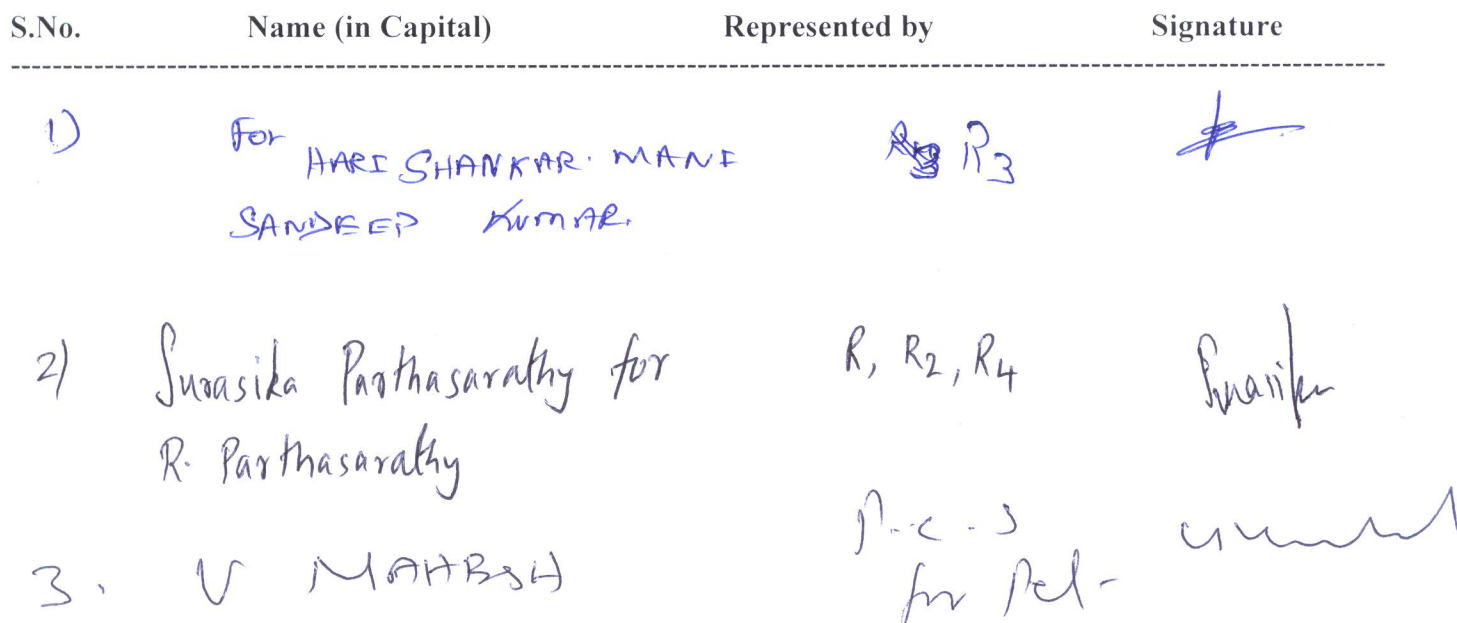 S.No. Name (in Capital) Represented by Signature
1) For HARI SHANKAR. MANI R3
SANDEEP KUMAR.
2) Surasika Parthasarathy for R, R2, R4 Surasika
R. Parthasarathy
P.C.S
3. V MAHESH
for Pet-